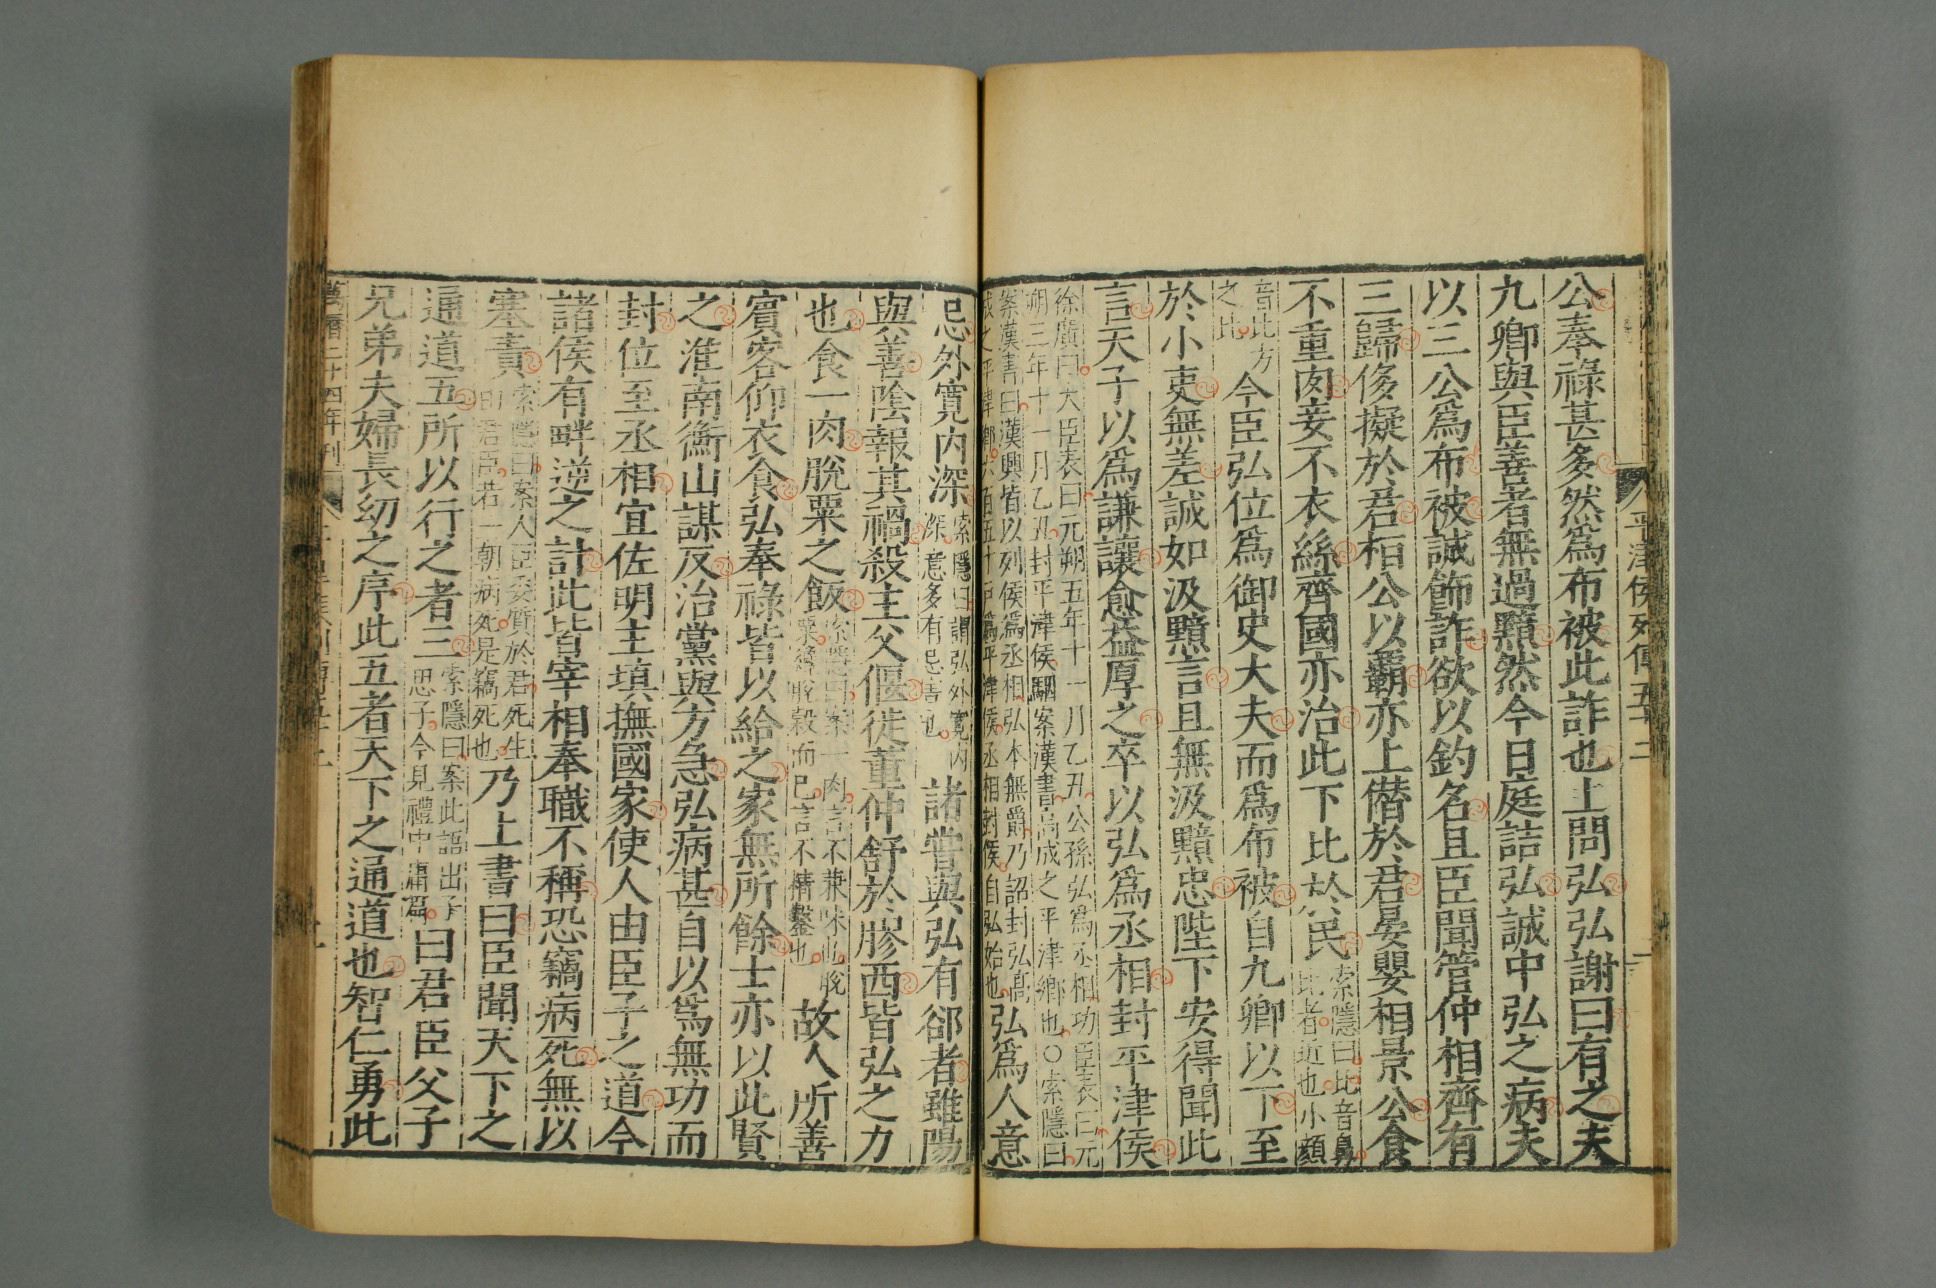 平津侯列傳五十二
公奉祿甚多然爲布被此詐也上問弘弘謝曰有之夫
九卿與臣善者無過黯然今日庭詰弘誠中弘之病夫
以三公爲布被誠飾詐欲以釣名且臣聞管仲相齊有
三歸侈擬於君桓公以霸亦上僭於君晏嬰相景公食
不重肉妾不衣絲齊國亦治此下比於民
索隱曰比音鼻
比者近也小顏
音比方
之比
今臣弘位爲御史大夫而爲布被自九卿以下至
於小吏無差誠如汲黯言且無汲黯忠陛下安得聞此
言天子以爲謙讓愈益厚之卒以弘爲丞相封平津侯
徐廣曰大臣表曰元朔五年十一月乙丑公孫弘爲丞相功臣表曰元
朔三年十一月乙丑封平津侯駰案漢書高成之平津鄉也○索隱曰
案漢書曰漢興皆以列侯爲丞相弘本無爵乃詔封弘高
成之平津鄉六百五十戶爲平津侯丞相封侯自弘始也
弘爲人意
忌外寛內深
索隱曰謂弘外寛內
深意多有忌害也
諸嘗與弘有郤者雖陽
與善陰報其禍殺主父偃徙董仲舒於膠西皆弘之力
也食一肉脫粟之飯
索隱曰案一肉言不兼味也脫
粟纔脫穀而已言不精鑿也
故人所善
賓客仰衣食弘奉祿皆以給之家無所餘士亦以此賢
之淮南衡山謀反治黨與方急弘病甚自以爲無功而
封位至丞相宜佐明主塡撫國家使人由臣子之道今
諸侯有畔逆之計此皆宰相奉職不稱恐竊病死無以
塞責
索隱曰案人臣委質於君死生
由君臣若一朝病死是竊死也
乃上書曰臣聞天下之
通道五所以行之者三
索隱曰案此語出子
思子今見禮中庸篇
曰君臣父子
兄弟夫婦長幼之序此五者天下之通道也智仁勇此
萬曆二十四年刊